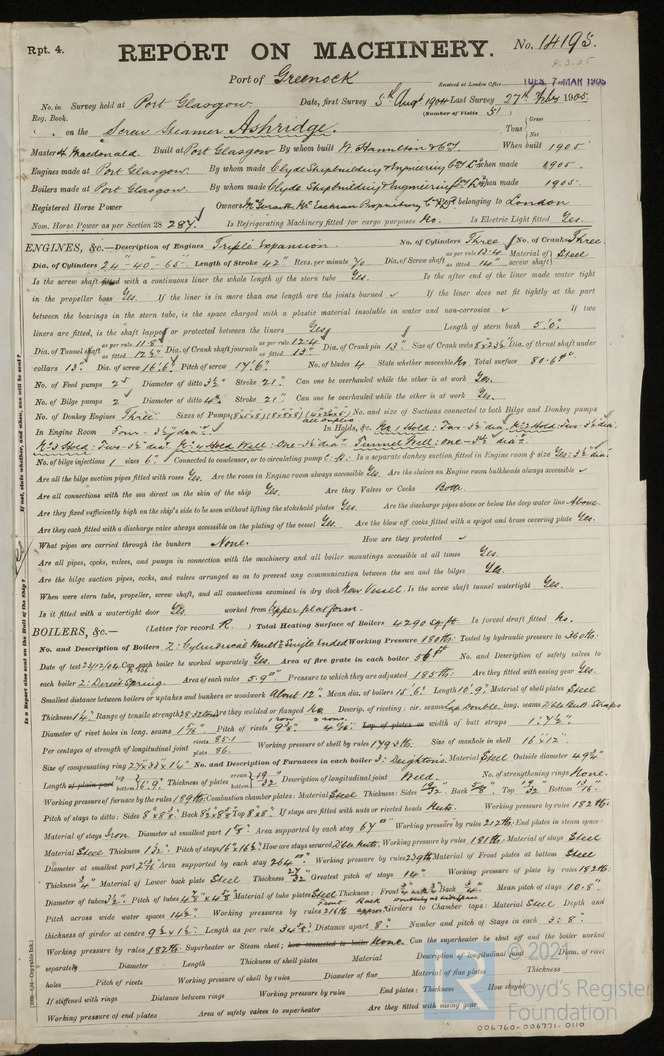 Rpt. 4.
REPORT ON MACHINERY.
No. 14195.
Port of Greenock
Received at London Office TUES. 7 MAR 1905
No. in Survey held at Port Glasgow. Date, first Survey 5th Augt 1904 Last Survey 27th Feby 1905
Reg. Book. (Number of Visits 51)
on the Screw Steamer Ashridge. Tons { Gross Net
Master H. Macdonald. Built at Port Glasgow By whom built W. Hamilton & Co. When built 1905
Engines made at Port Glasgow. By whom made Clyde Shipbuilding & Engineering Co. Ld. when made 1905.
Boilers made at Port Glasgow By whom made Clyde Shipbuilding & Engineering Co. Ld. when made 1905.
Registered Horse Power Owners belonging to London
Nom. Horse Power as per Section 28 287. Is Refrigerating Machinery fitted for cargo purposes No. Is Electric Light fitted Yes.
ENGINES, &c.—Description of Engines Triple Expansion No. of Cylinders Three No. of Cranks Three.
Dia. of Cylinders 24"-40"-65" Length of Stroke 42" Revs. per minute 70 Dia. of Screw shaft as per rule 13.4 as fitted 14" Material of screw shaft Steel
Is the screw shaft fitted with a continuous liner the whole length of the stern tube Yes. Is the after end of the liner made water tight
in the propeller boss Yes. If the liner is in more than one length are the joints burned If the liner does not fit tightly at the part
between the bearings in the stern tube, is the space charged with a plastic material insoluble in water and non-corrosive If two
liners are fitted, is the shaft lapped or protected between the liners Yes Length of stern bush 5'.0"
Dia. of Tunnel shaft as per rule 11.8" as fitted 12½" Dia. of Crank shaft journals as per rule 12.4" as fitted 13" Dia. of Crank pin 13" Size of Crank webs 8"x23½" Dia. of thrust shaft under
collars 13" Dia. of screw 16'.6" Pitch of screw 17'.6" No. of blades 4 State whether moveable No. Total surface 80.6
No. of Feed pumps 2 Diameter of ditto 3½" Stroke 21" Can one be overhauled while the other is at work Yes.
No. of Bilge pumps 2 Diameter of ditto Stroke 21" Can one be overhauled while the other is at work Yes.
No. of Donkey Engines Three Sizes of Pumps No. and size of Suctions connected to both Bilge and Donkey pumps
In Engine Room Four - 3½" dia. In Holds, &c. No. 1 Hold: Two-3½" dia. No. 2 Hold: Two-3½" dia.
No. 3 Hold: Two-3½" dia. No. 4 Hold Well: One-3½" dia. Tunnel Well: one-3½" dia.
No. of bilge injections 1 sizes 6" Connected to condenser, or to circulating pump C.P. Is a separate donkey suction fitted in Engine room & size Yes: 3½" dia.
Are all the bilge suction pipes fitted with roses Yes. Are the roses in Engine room always accessible Yes. Are the sluices on Engine room bulkheads always accessible
Are all connections with the sea direct on the skin of the ship Yes. Are they Valves or Cocks Both.
Are they fixed sufficiently high on the ship's side to be seen without lifting the stokehold plates Yes. Are the discharge pipes above or below the deep water line Above.
Are they each fitted with a discharge valve always accessible on the plating of the vessel Yes. Are the blow off cocks fitted with a spigot and brass covering plate Yes.
What pipes are carried through the bunkers None. How are they protected
Are all pipes, cocks, valves, and pumps in connection with the machinery and all boiler mountings accessible at all times Yes.
Are the bilge suction pipes, cocks, and valves arranged so as to prevent any communication between the sea and the bilges Yes.
When were stern tube, propeller, screw shaft, and all connections examined in dry dock New Vessel. Is the screw shaft tunnel watertight Yes.
Is it fitted with a watertight door Yes. worked from Upper platform.
BOILERS, &c.— (Letter for record R.) Total Heating Surface of Boilers 4290 sq. ft Is forced draft fitted No.
No. and Description of Boilers 2: Cylindrical Mult. Single Ended Working Pressure 180 lb. Tested by hydraulic pressure to 360 lb.
Date of test 22/12/04 Can each boiler be worked separately Yes. Area of fire grate in each boiler No. and Description of safety valves to
each boiler 2: Direct Spring. Area of each valve 5.9" Pressure to which they are adjusted 185 lb. Are they fitted with easing gear Yes.
Smallest distance between boilers or uptakes and bunkers or woodwork About 12". Mean dia. of boilers 15'.6" Length 10'.9" Material of shell plates Steel
Thickness Range of tensile strength 28.32 tons Are they welded or flanged No Descrip. of riveting: cir. seams Lap Double. long. seams Dble. Butt. Straps
Diameter of rivet holes in long. seams 1 5/16" Pitch of rivets Lap of plates or width of butt straps 1'.7½"
Per centages of strength of longitudinal joint rivets 85.1 plate 86. Working pressure of shell by rules 179.3 lb. Size of manhole in shell 16"x12".
Size of compensating ring No. and Description of Furnaces in each boiler 3: Deightons. Material Steel Outside diameter 49¼"
Length of plain part top bottom 6'.9" Thickness of plates crown 19/32" bottom Description of longitudinal joint Weld. No. of strengthening rings None.
Working pressure of furnace by the rules 189 lb. Combustion chamber plates: Material Steel Thickness: Sides 19/32" Back 5/8" Top 19/32" Bottom 13/16"
Pitch of stays to ditto: Sides Back Top 8x8" If stays are fitted with nuts or riveted heads Nuts. Working pressure by rules 182 lb.
Material of stays Iron Diameter at smallest part Area supported by each stay 67" Working pressure by rules 212 lb. End plates in steam space:
Material Steel Thickness Pitch of stays 16"x16½" How are stays secured Dble. Nuts. Working pressure by rules 181 lb. Material of stays Steel
Diameter at smallest part Area supported by each stay 264" Working pressure by rules Material of Front plates at bottom Steel
Thickness ¾" Material of Lower back plate Steel Thickness 27/32" Greatest pitch of stays 14" Working pressure of plate by rules 182 lb.
Diameter of tubes 3½" Pitch of tubes Material of tube plates Steel Thickness: Front Back ¾" Mean pitch of stays 10.8"
Pitch across wide water spaces 14½" Working pressures by rules Girders to Chamber tops: Material Steel Depth and
thickness of girder at centre Length as per rule Distance apart 8" Number and pitch of Stays in each 3: 8"
Working pressure by rules 182 lb. Superheater or Steam chest; how connected to boiler None. Can the superheater be shut off and the boiler worked
separately Diameter Length Thickness of shell plates Material Description of longitudinal joint Diam. of rivet
holes Pitch of rivets Working pressure of shell by rules Diameter of flue Material of flue plates Thickness
If stiffened with rings Distance between rings Working pressure by rules End plates: Thickness How stayed
Working pressure of end plates Area of safety valves to superheater Are they fitted with easing gear
If not, state whether, and when, one will be sent?
Is a Report also sent on the Hull of the Ship?
© 2021
Lloyd's Register
Foundation
006760-006771-0110